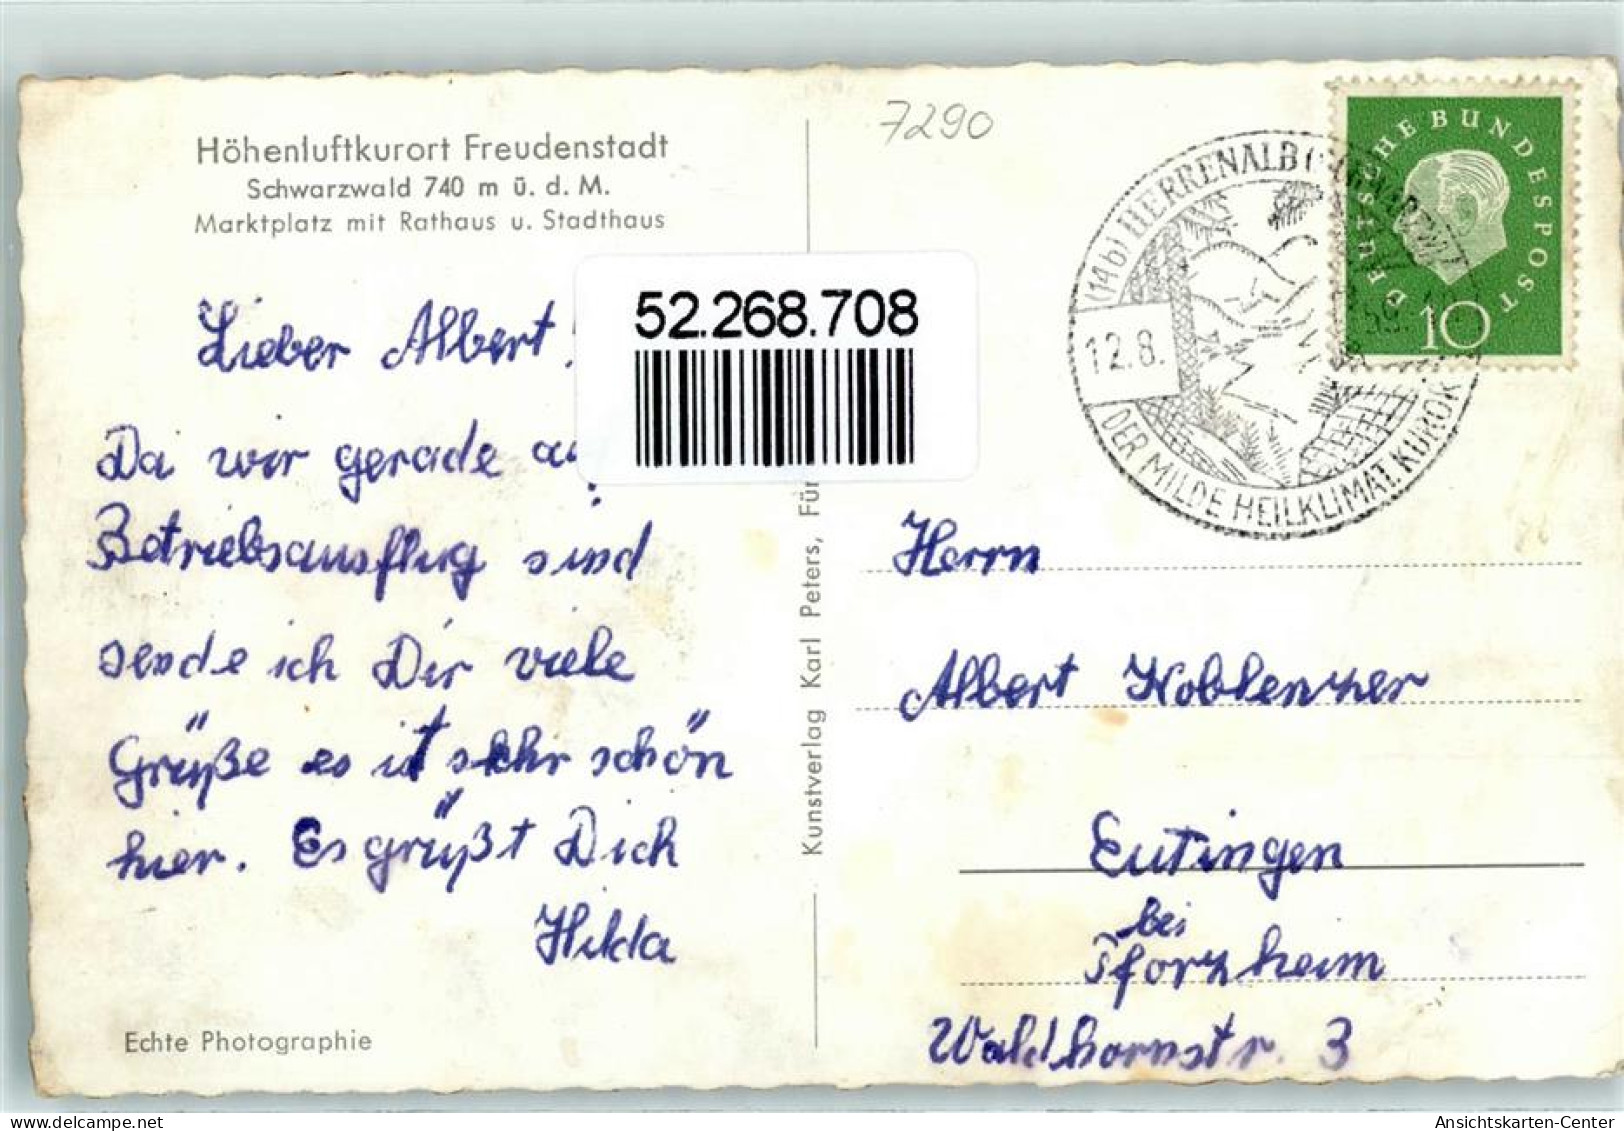 Höhenluftkurort Freudenstadt
Schwarzwald 740 m ü. d. M.
Marktplatz mit Rathaus u. Stadthaus
7290
52.268.708
Lieber Albert!
Da wir gerade
Betriebsausflug sind
sende ich Dir viele
Grüße es ist sehr schön
hier. Es grüßt Dich
Hilda
Echte Photographie
Kunstverlag Karl Peters, Für
(14b) HERRENALB
12.8. 59.
DER MILDE HEILKLIMAT. KURORT
DEUTSCHE BUNDESPOST
10
Herrn
Albert Koblenzer
Eutingen
bei
Pforzheim
Waldhornstr. 3
Ansichtskarten-Center